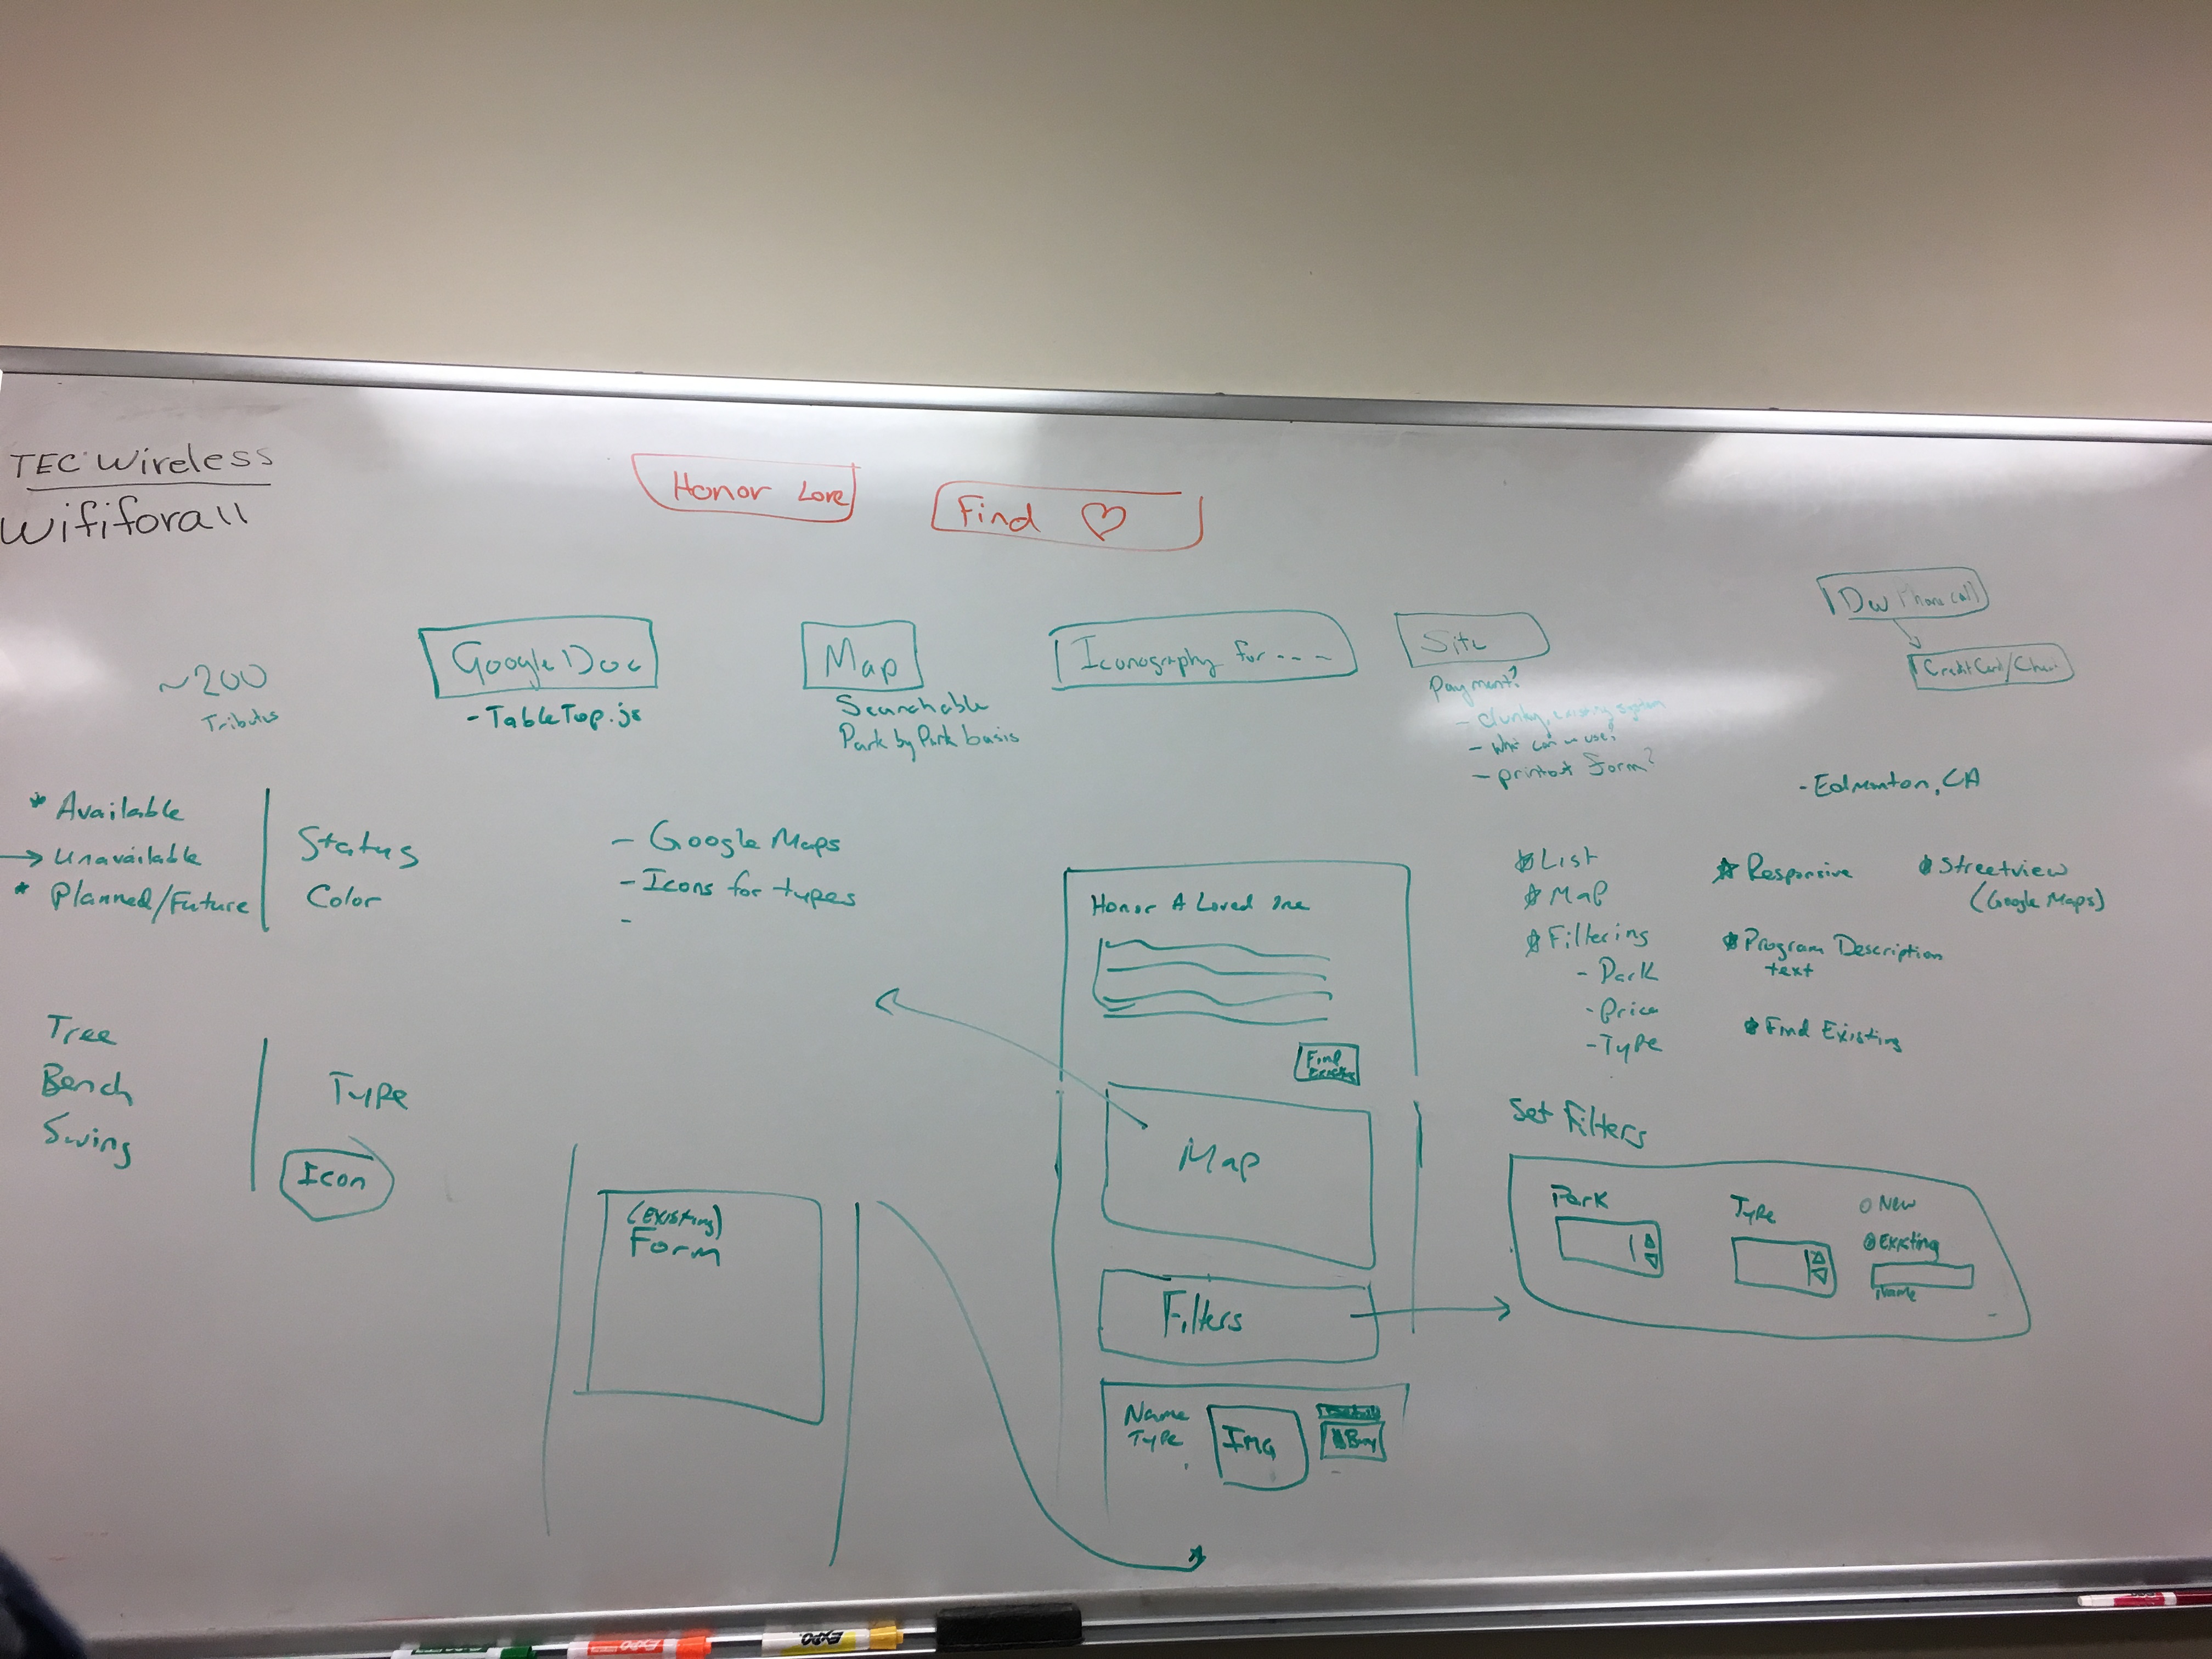 TEC Wireless
Wififorall
Honor Love
Find ♡
~200
Tributes
Google Doc
- TableTop.js
Map
Searchable
Park by Park basis
Iconography for ---
Site
Payment?
- clunky, existing system
- what can we use?
- printout form?
Phone call
Credit Card/
- Edmonton, CA
* Available
→ Unavailable
* Planned/Future
Status
Color
- Google Maps
- Icons for types
-
Tree
Bench
Swing
Type
Icon
(Existing)
Form
Honor A Loved One
Find
Existing
Map
Filters
Name
Type
Img
Buy
* List
* Map
* Filtering
- Park
- Price
- Type
* Responsive
* Program Description
text
* Find Existing
* Streetview
(Google Maps)
Set Filters
Park
Type
○ New
Existing
Name
EXPO
EXPO